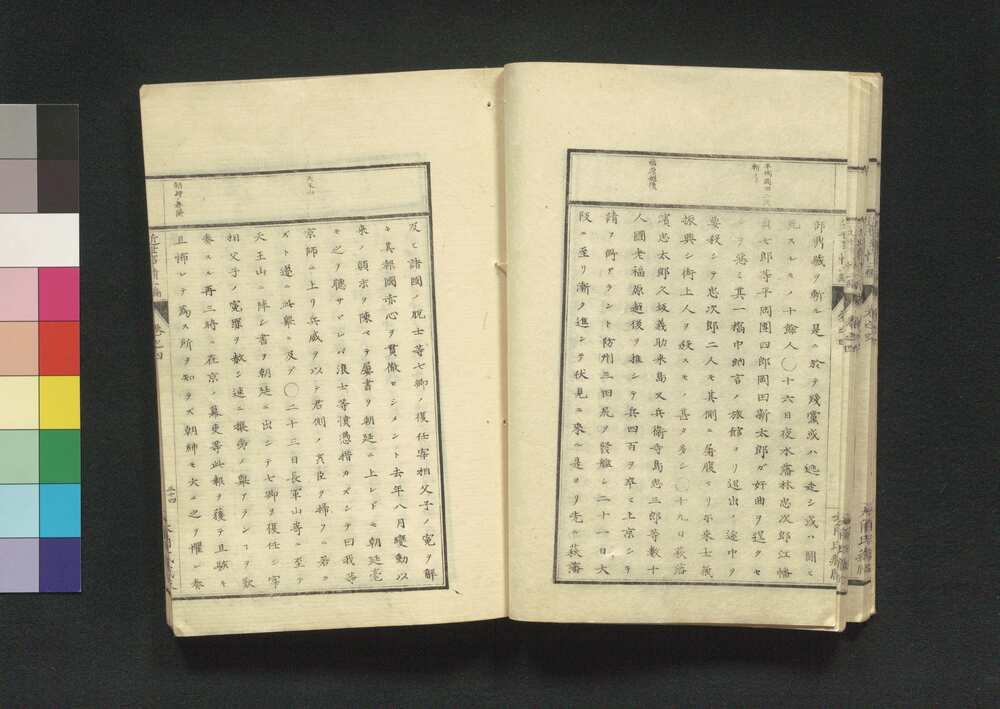 平岡圓四
斬ら
福原越後
郎勝蔵ヲ斬ル是ニ於テ殘黨或ハ逃走シ或ハ闘
死スルモノ十餘人〇十六日夜水藩林忠次郎江幡
貞七郎等平岡圓四郎岡田新太郎ガ奸曲ヲ逞クセ
ヲ惡ミ其一橋中納言ノ旅館ヨリ退出ノ途中ヲ
要殺シテ忠次郎二人モ其側ニ屠腹セリ尓来士氣
振興シ街上人ヲ殺スモノ甚タ多シ〇十九日萩藩
濱忠太郎久坂義助来島又兵衛寺島忠三郎等數十
人國老福原越後ヲ推シテ兵四百ヲ卒ヒ上京シテ
請フ所アラントシ防州三田尻ヲ發艦シ二十一日大
阪ニ至リ漸ク進ンテ伏見ニ来ル是ヨリ先キ萩藩
天王山
朝紳善後
及ヒ諸國ノ脱士等七卿ノ復任宰相父子ノ寃ヲ解
キ其報國赤心ヲ貫徹セシメント去年八月變動以
来ノ顛末ヲ陳ベテ屢書ヲ朝廷ニ上レドモ朝廷毫
モ之ヲ聴サヾレバ浪士等憤懣措カズシテ曰我等
京師ニ上リ兵威ヲ以テ君側ノ奸臣ヲ掃フニ若カ
ズト遂ニ此擧ニ及ブ〇二十三日長軍山崎ニ至テ
天王山ニ陣シ書ヲ朝廷ニ出シテ七卿ヲ復任シ宰
相父子ノ寃罪ヲ赦シ速ニ攘夷ノ擧アランコヲ歎
奏スル再三時ニ在京ノ幕吏等此報ヲ獲テ且駭キ
且怖レテ為ス所ヲ知ラズ朝紳モ大ニ之ヲ懼レ奏
巻之四
五十四